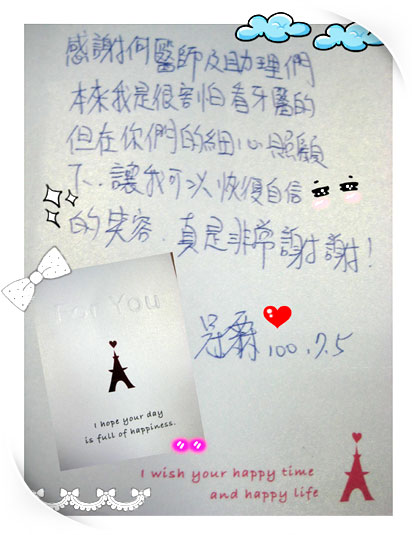 感謝何醫師及助理們
本來我是很害怕看牙醫的
但在你們的細心照顧
下、讓我可以恢復自信
的笑容.真是非常謝謝!
100.7.5
For You
I hope your day
is full of happiness.
I wish your happy time
and happy life